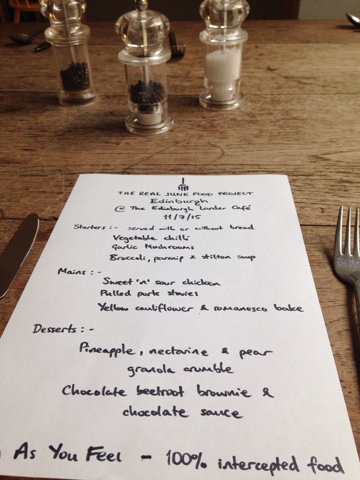 THE REAL JUNK FOOD PROJECT
Edinburgh
@ The Edinburgh Larder Café
11/7/15
Starters :- served with or without bread
Vegetable chilli
Garlic Mushrooms
Broccoli, parsnip & stilton soup
Mains :-
Sweet 'n' sour chicken
Pulled pork
Yellow cauliflower & romanesco bake
Desserts :-
Pineapple, nectarine & pear
granola crumble
Chocolate beetroot brownie &
chocolate sauce
As You Feel - 100% intercepted food